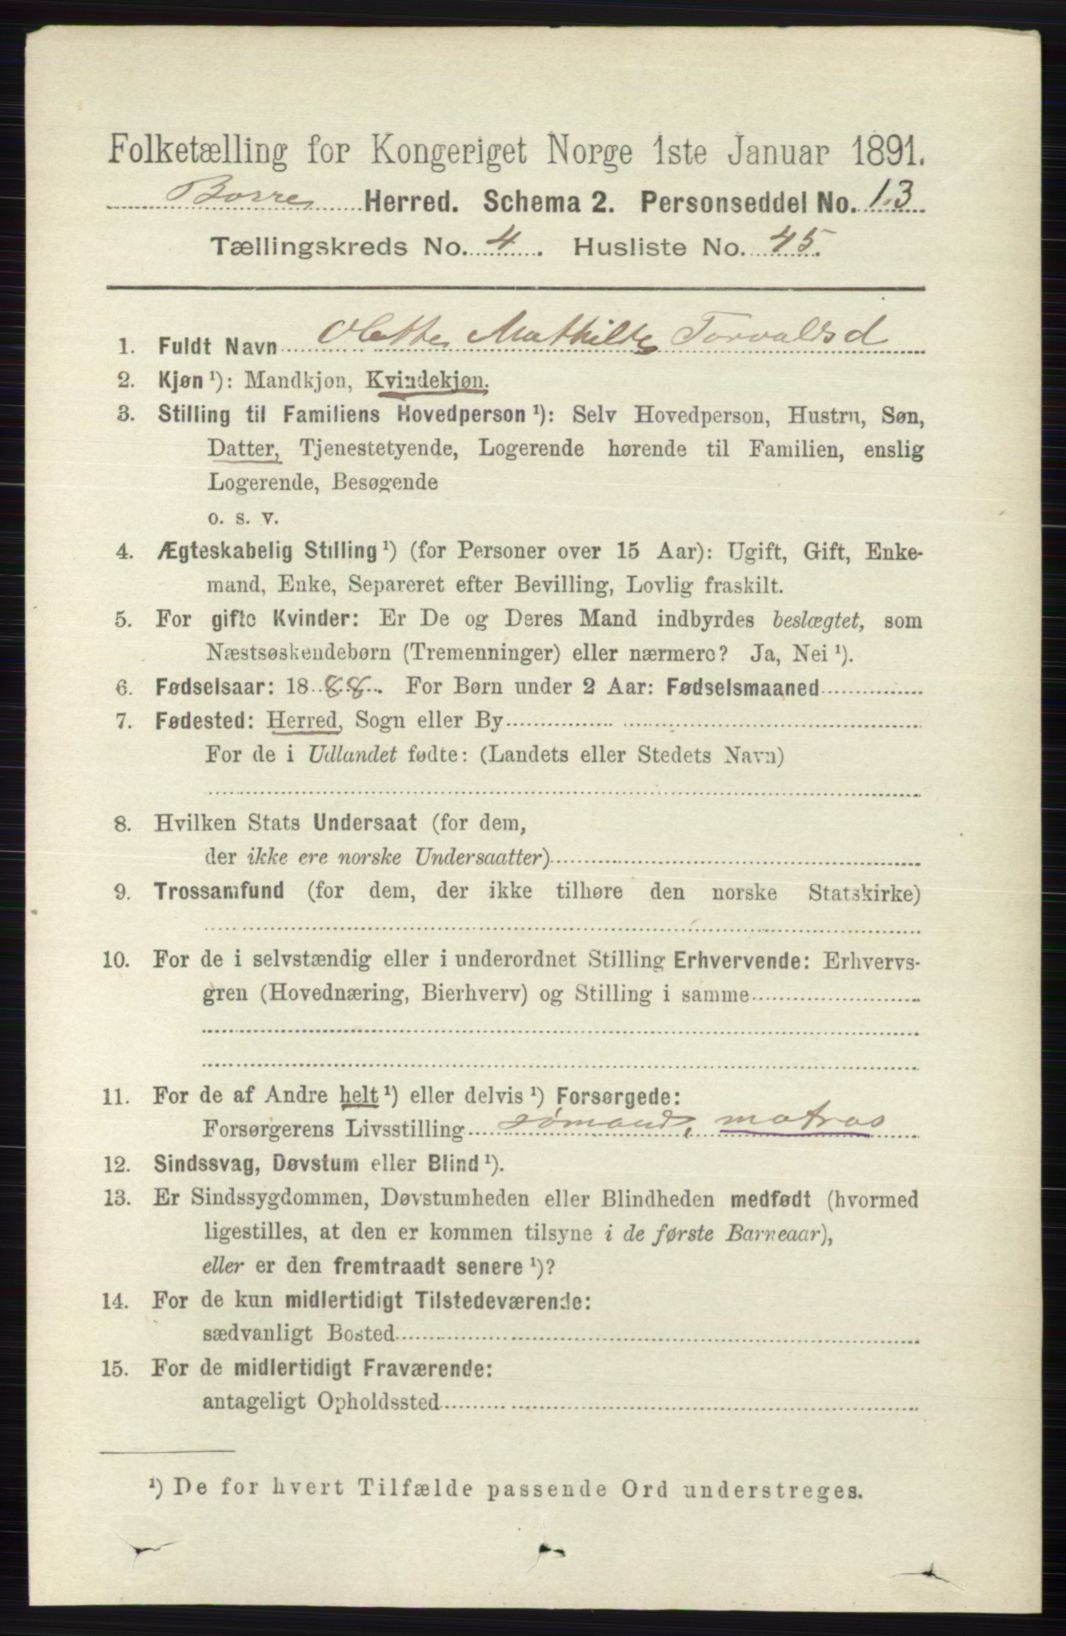 Folketælling for Kongeriget Norge 1ste Januar 1891.
Borre Herred. Schema 2. Personseddel No. 13
Tællingskreds No. 4. Husliste No. 45.
1. Fuldt Navn Olette Mathilde Torvalsd
2. Kjøn ¹): Mandkjøn, Kvindekjøn.
3. Stilling til Familiens Hovedperson ¹): Selv Hovedperson, Hustru, Søn,
Datter, Tjenestetyende, Logerende hørende til Familien, enslig
Logerende, Besøgende
o. s. v.
4. Ægteskabelig Stilling ¹) (for Personer over 15 Aar): Ugift, Gift, Enke-
mand, Enke, Separeret efter Bevilling, Lovlig fraskilt.
5. For gifte Kvinder: Er De og Deres Mand indbyrdes beslægtet, som
Næstsøskendebørn (Tremenninger) eller nærmere? Ja, Nei ¹).
6. Fødselsaar: 1888. For Børn under 2 Aar: Fødselsmaaned
7. Fødested: Herred, Sogn eller By
For de i Udlandet fødte: (Landets eller Stedets Navn)
8. Hvilken Stats Undersaat (for dem,
der ikke ere norske Undersaatter)
9. Trossamfund (for dem, der ikke tilhøre den norske Statskirke)
10. For de i selvstændig eller i underordnet Stilling Erhvervende: Erhvervs-
gren (Hovednæring, Bierhverv) og Stilling i samme
11. For de af Andre helt ¹) eller delvis ¹) Forsørgede:
Forsørgerens Livsstilling sømand, matros
12. Sindssvag, Døvstum eller Blind ¹).
13. Er Sindssygdommen, Døvstumheden eller Blindheden medfødt (hvormed
ligestilles, at den er kommen tilsyne i de første Barneaar),
eller er den fremtraadt senere ¹)?
14. For de kun midlertidigt Tilstedeværende:
sædvanligt Bosted
15. For de midlertidigt Fraværende:
antageligt Opholdssted
¹) De for hvert Tilfælde passende Ord understreges.